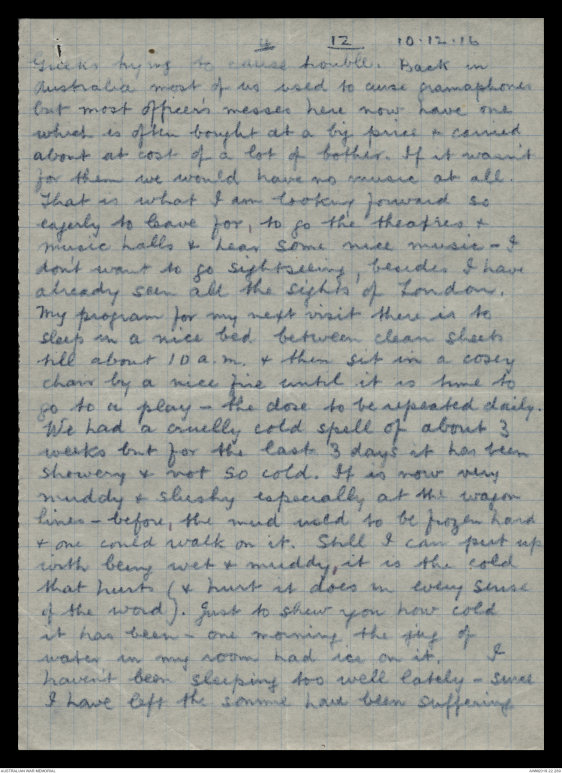 12 10.12.16
Greeks trying to cause trouble. Back in
Australia most of us used to curse gramaphones
but most officer's messes here now have one
which is often bought at a big price & carried
about at cost of a lot of bother. If it wasn't
for them we would have no music at all.
That is what I am looking forward so
eagerly to leave for, to go to the theatres &
music halls & hear some nice music - I
don't want to go sightseeing, besides I have
already seen all the sights of London.
My program for my next visit there is to
sleep in a nice bed between clean sheets
till about 10 a.m. & then sit in a cosey
chair by a nice fire until it is time to
go to a play - the dose to be repeated daily.
We had a cruelly cold spell of about 3
weeks but for the last 3 days it has been
showery & not so cold. It is now very
muddy & slushy especially at the wagon
lines - before, the mud used to be frozen hard
& one could walk on it. Still I can put up
with being wet & muddy, it is the cold
that hurts (& hurt it does in every sense
of the word). Just to shew you how cold
it has been - one morning the jug of
water in my room had ice on it. I
havent been sleeping too well lately - since
I have left the somme have been suffering
AUSTRALIAN WAR MEMORIAL